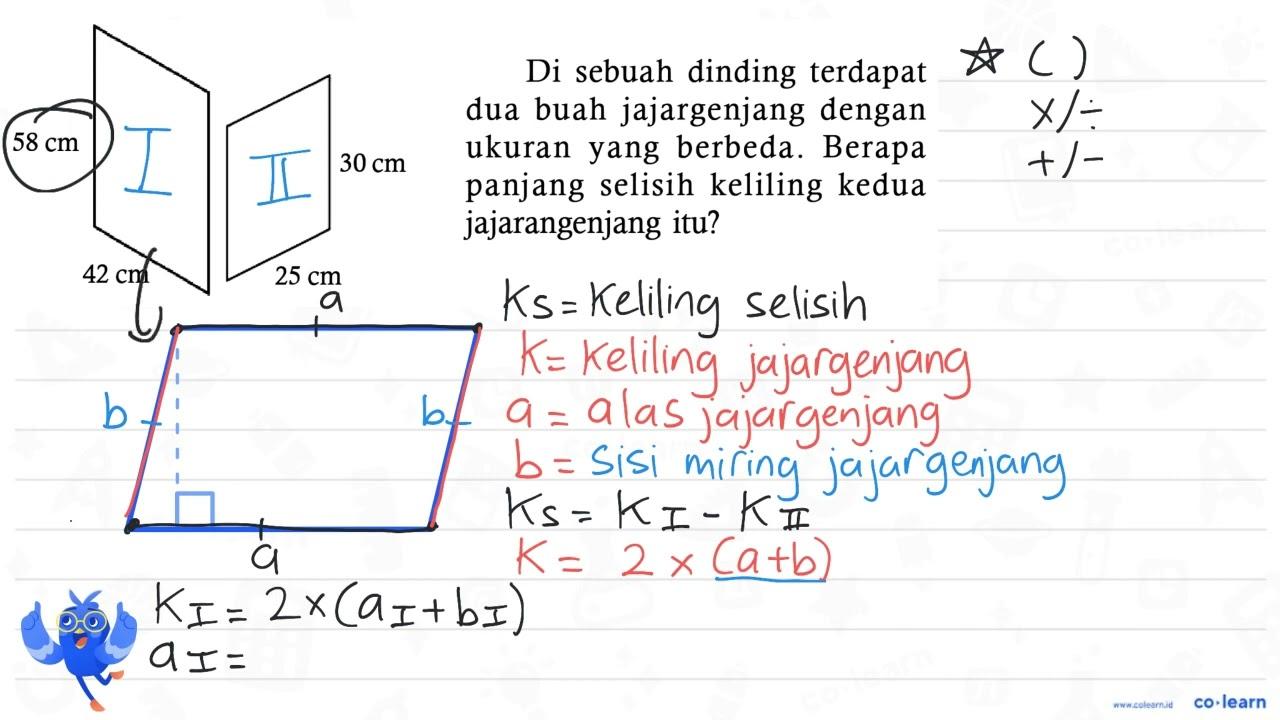 58 cm
I
42 cm
II
30 cm
25 cm
Di sebuah dinding terdapat
dua buah jajargenjang dengan
ukuran yang berbeda. Berapa
panjang selisih keliling kedua
jajarangenjang itu?
☆ ( )
×/÷
+/-
a
b
b
a
Ks = Keliling selisih
K = Keliling jajargenjang
a = alas jajargenjang
b = sisi miring jajargenjang
Ks = K I - K II
K = 2 × (a+b)
K I = 2×(a I + b I)
a I =
www.colearn.id
co·learn